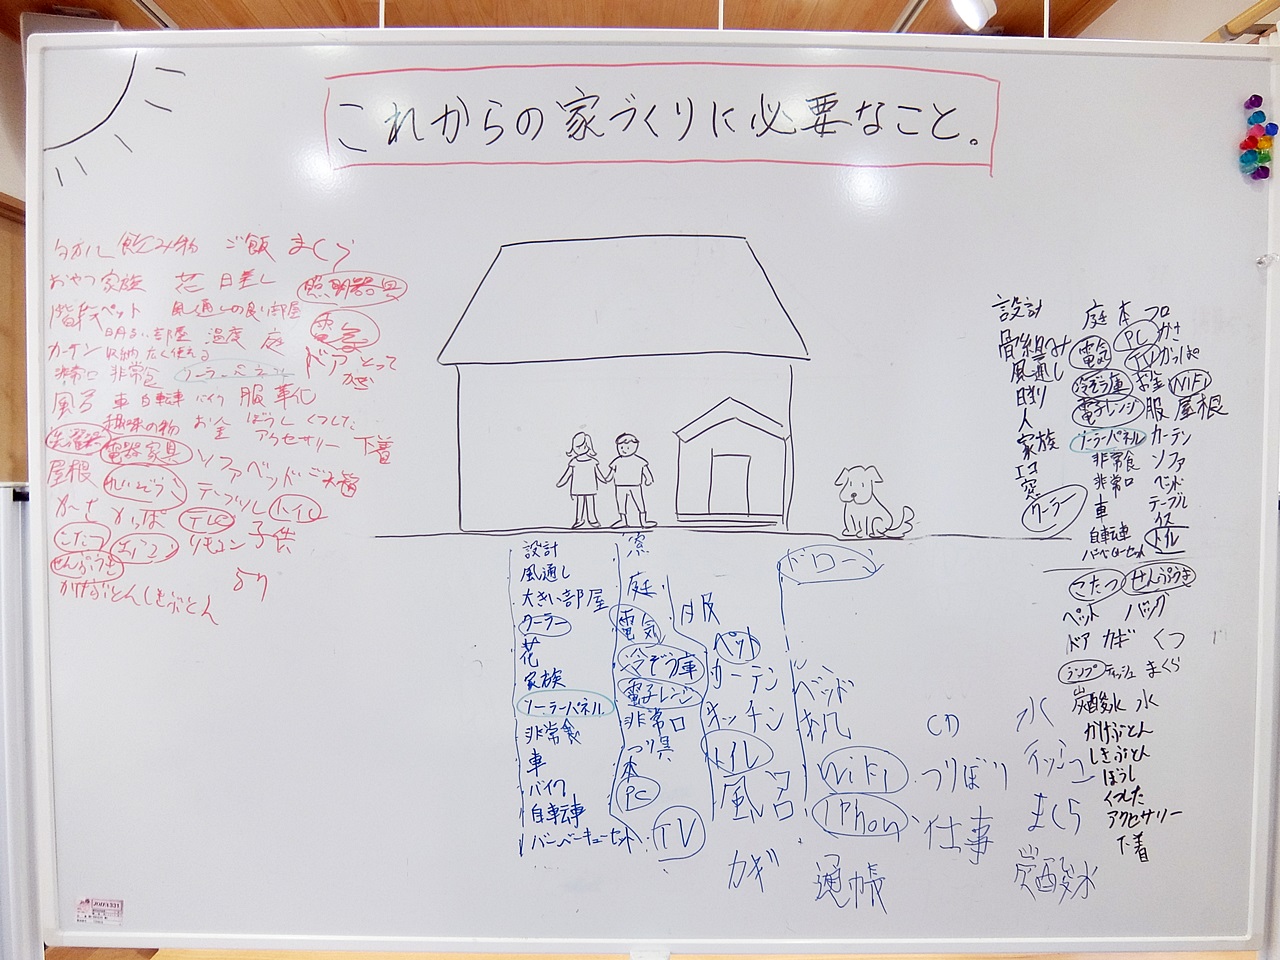 これからの家づくりに必要なこと。
タオル 飲み物 ご飯 まくら
おやつ 家族 花 日差し 照明器具
階段 ペット 風通しの良い部屋
明るい部屋 温度 庭 電気
カーテン 収納 たくさん ドア とって
非常口 非常食 ソーラーパネル 窓
風呂 車 自転車 バイク 服 革化
趣味の物 お金 ぼうし くつした
洗濯 電器家具 アクセサリー 下着
屋根 れいぞうこ ソファ ベッド ご夫婦
かさ かっぱ テレビ テーブル トイレ
こたつ エアコン リモコン 子供
せんぷうき
かけぶとん しきぶとん
設計
風通し
大きい部屋
クーラー
花
家族
ソーラーパネル
非常食
車
バイク
自転車
バーベーキューセット
窓
庭
電気
冷ぞう庫
電子レンジ
非常口
つり具
本
PC
TV
服
ペット
カーテン
キッチン
トイレ
風呂
カギ
ドローン
ベッド
机
WiFi
iPhon
通帳
CD
つりぼり
仕事
水
ティッシュ
まくら
炭酸水
設計
骨組み
風通し
日割り
人
家族
エコ
窓
クーラー
庭 本 フロ
電気 PC かさ
TV かっぱ
冷ぞう庫 お金 WiFi
電子レンジ 服 屋根
ソーラーパネル カーテン
非常食 ソファ
非常口 ベッド
車 テーブル
イス
自転車 トイレ
バーベキューセット
こたつ せんぷうき
ペット バッグ
ドア カギ くつ
ランプ ティッシュ まくら
炭酸水 水
かけぶとん
しきぶとん
ぼうし
くつした
アクセサリー
下着